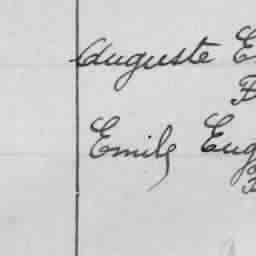 Auguste E
F
Emile Eug
F